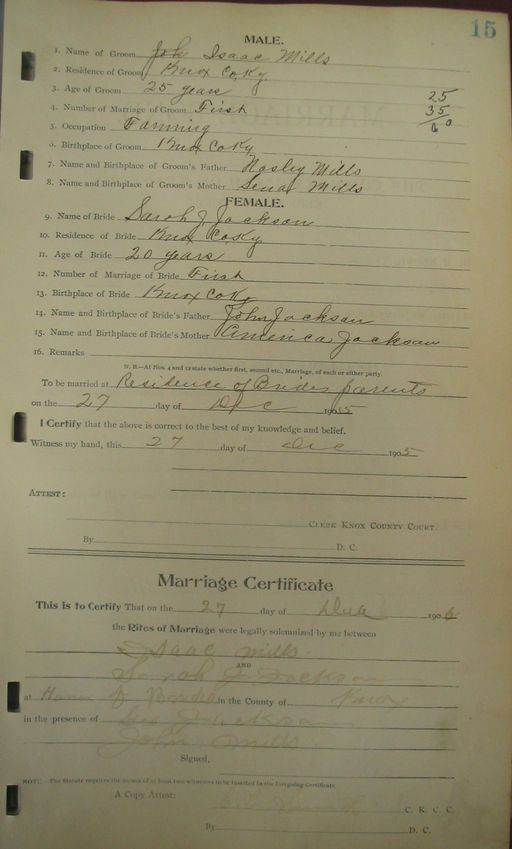 15
MALE.
1. Name of Groom Isaac Mills
2. Residence of Groom Knox Co Ky
3. Age of Groom 25 years 25
4. Number of Marriage of Groom First 35
5. Occupation Farming 60
6. Birthplace of Groom Knox Co Ky
7. Name and Birthplace of Groom's Father Mills
8. Name and Birthplace of Groom's Mother Mills
FEMALE.
9. Name of Bride Sarah J Jackson
10. Residence of Bride Knox Co Ky
11. Age of Bride 20 years
12. Number of Marriage of Bride First
13. Birthplace of Bride Knox Co Ky
14. Name and Birthplace of Bride's Father John Jackson
15. Name and Birthplace of Bride's Mother America Jackson
16. Remarks
N. B.—At Nos. 4 and 12 state whether first, second etc., Marriage, of each or either party.
To be married at Residence of Brides parents
on the 27 day of Dec 1905
I Certify that the above is correct to the best of my knowledge and belief.
Witness my hand, this 27 day of Dec 1905
ATTEST:
CLERK KNOX COUNTY COURT.
By D. C.
Marriage Certificate
This is to Certify That on the 27 day of 190
the Rites of Marriage were legally solemnized by me between
Isaac Mills
AND
Sarah J Jackson
at of in the County of Knox
in the presence of Jackson
John Mills
Signed,
NOTE.—The Statute requires the names of at least two witnesses to be inserted in the foregoing Certificate.
A Copy Attest: C. K. C. C.
By D. C.